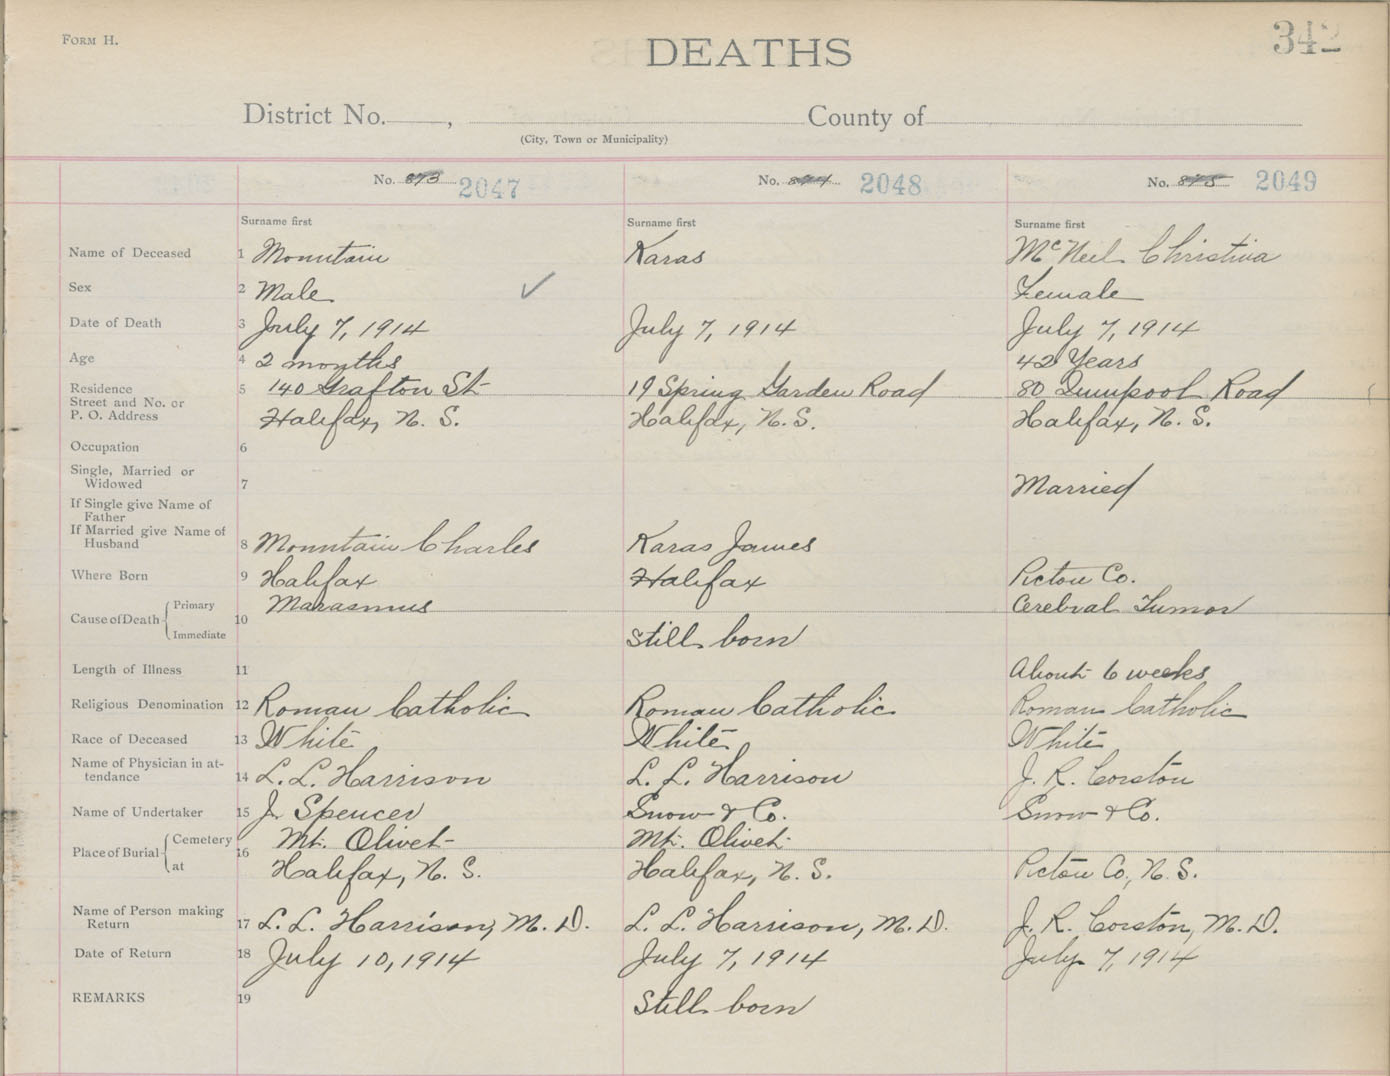 FORM H.
DEATHS
342
District No. , County of
(City, Town or Municipality)
No. 873 2047 No. 874 2048 No. 875 2049
Surname first Surname first Surname first
Name of Deceased 1 Mountain Karas McNeil Christina
Sex 2 Male ✓ Female
Date of Death 3 July 7, 1914 July 7, 1914 July 7, 1914
Age 4 2 months 42 Years
Residence 5 140 Grafton St 19 Spring Garden Road 80 Quinpool Road
Street and No. or
P. O. Address Halifax, N. S. Halifax, N. S. Halifax, N. S.
Occupation 6
Single, Married or
Widowed 7 Married
If Single give Name of
Father
If Married give Name of
Husband 8 Mountain Charles Karas James
Where Born 9 Halifax Halifax Pictou Co.
Primary Marasmus Cerebral Tumor
Cause of Death 10
Immediate Still born
Length of Illness 11 About 6 weeks
Religious Denomination 12 Roman Catholic Roman Catholic Roman Catholic
Race of Deceased 13 White White White
Name of Physician in at-
tendance 14 L. L. Harrison L. L. Harrison J. R. Corston
Name of Undertaker 15 J. Spencer Snow & Co. Snow & Co.
Cemetery Mt. Olivet Mt. Olivet
Place of Burial 16
at Halifax, N. S. Halifax, N. S. Pictou Co., N. S.
Name of Person making
Return 17 L. L. Harrison, M. D. L. L. Harrison, M. D. J. R. Corston, M. D.
Date of Return 18 July 10, 1914 July 7, 1914 July 7, 1914
REMARKS 19 Still born